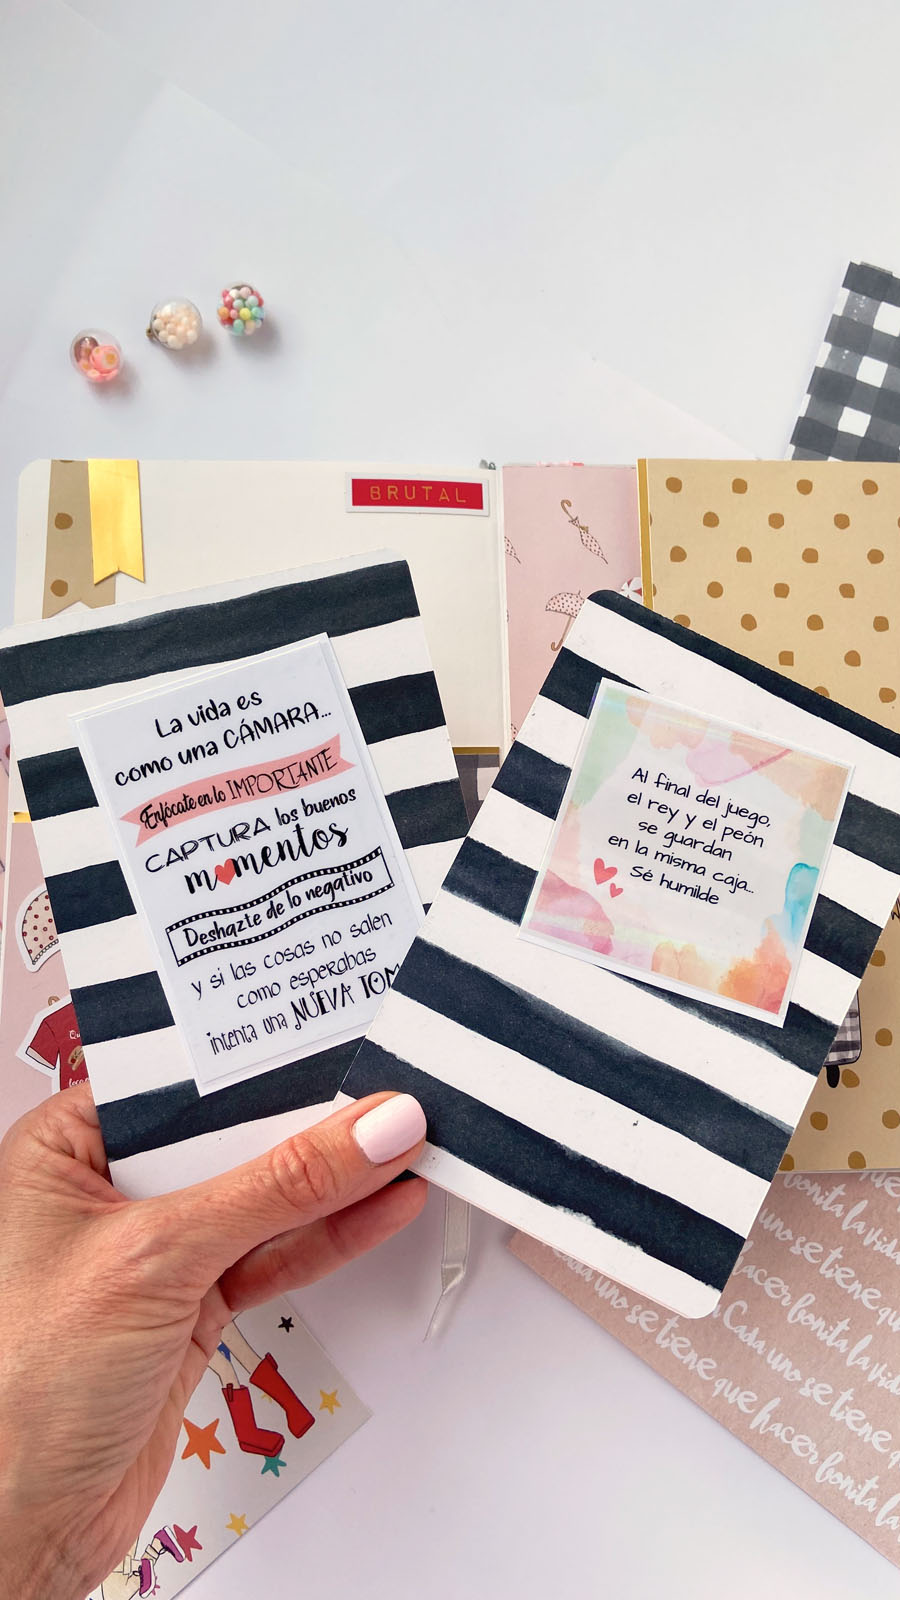 BRUTAL
La vida es
como una CÁMARA...
Enfócate en lo IMPORTANTE
CAPTURA los buenos
momentos
Deshazte de lo negativo
y si las cosas no salen
como esperabas
intenta una NUEVA TOM
Al final del juego,
el rey y el peón
se guardan
en la misma caja...
Sé humilde
bonita la vida
uno se tiene que
hacer bonita la vida
Cada uno se tiene
Cada uno se tiene que hacer bonita la